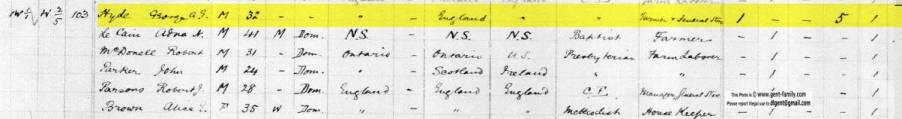 W 2/5 103 Hyde George A. J. M 32 - " - England " " Farmer & General Store 1 - - 5 1
Le Cain Adna A. M 41 M Dom. N.S. - N.S. N.S. Baptist Farmer - 1 - - 1
McDonell Robert M 31 - Dom. Ontario - Ontario U.S. Presbyterian Farm Laborer - 1 - - 1
Parker John M 24 - Dom. " - Scotland Ireland " " - 1 - - 1
Parsons Robert J. M 28 - Dom. England - England England Manager General Store - 1
Brown Alice F 35 W Dom. " - " " Methodist House Keeper - 1
This Photo is © www.gent-family.com
Please report illegal use to digent@gmail.com